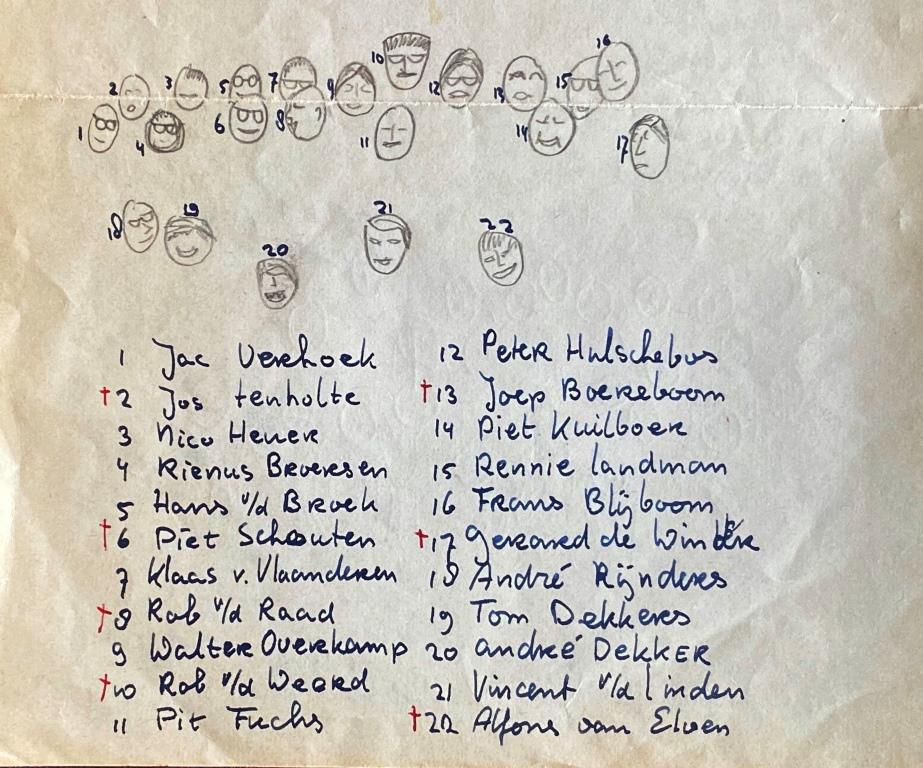 16
10
2 3 5 7 9 12 13 15
1 4 6 8 11 14 17
18 19 20 21 22
1 Jac Verhoek
†2 Jos tenholte
3 Nico Heuer
4 Rienus Broersen
5 Hans v/d Broek
†6 Piet Schouten
7 Klaas v. Vlaanderen
†8 Rob v/d Raad
9 Walter Overkamp
†10 Rob v/d Weerd
11 Pit Fuchs
12 Peter Hulschebos
†13 Joep Boereboom
14 Piet Kuilboer
15 Rennie landman
16 Frans Blijboom
†17 Gerard de Winter
18 André Rijnders
19 Tom Dekkers
20 André DEKKER
21 Vincent v/d linden
†22 Alfons van Elven